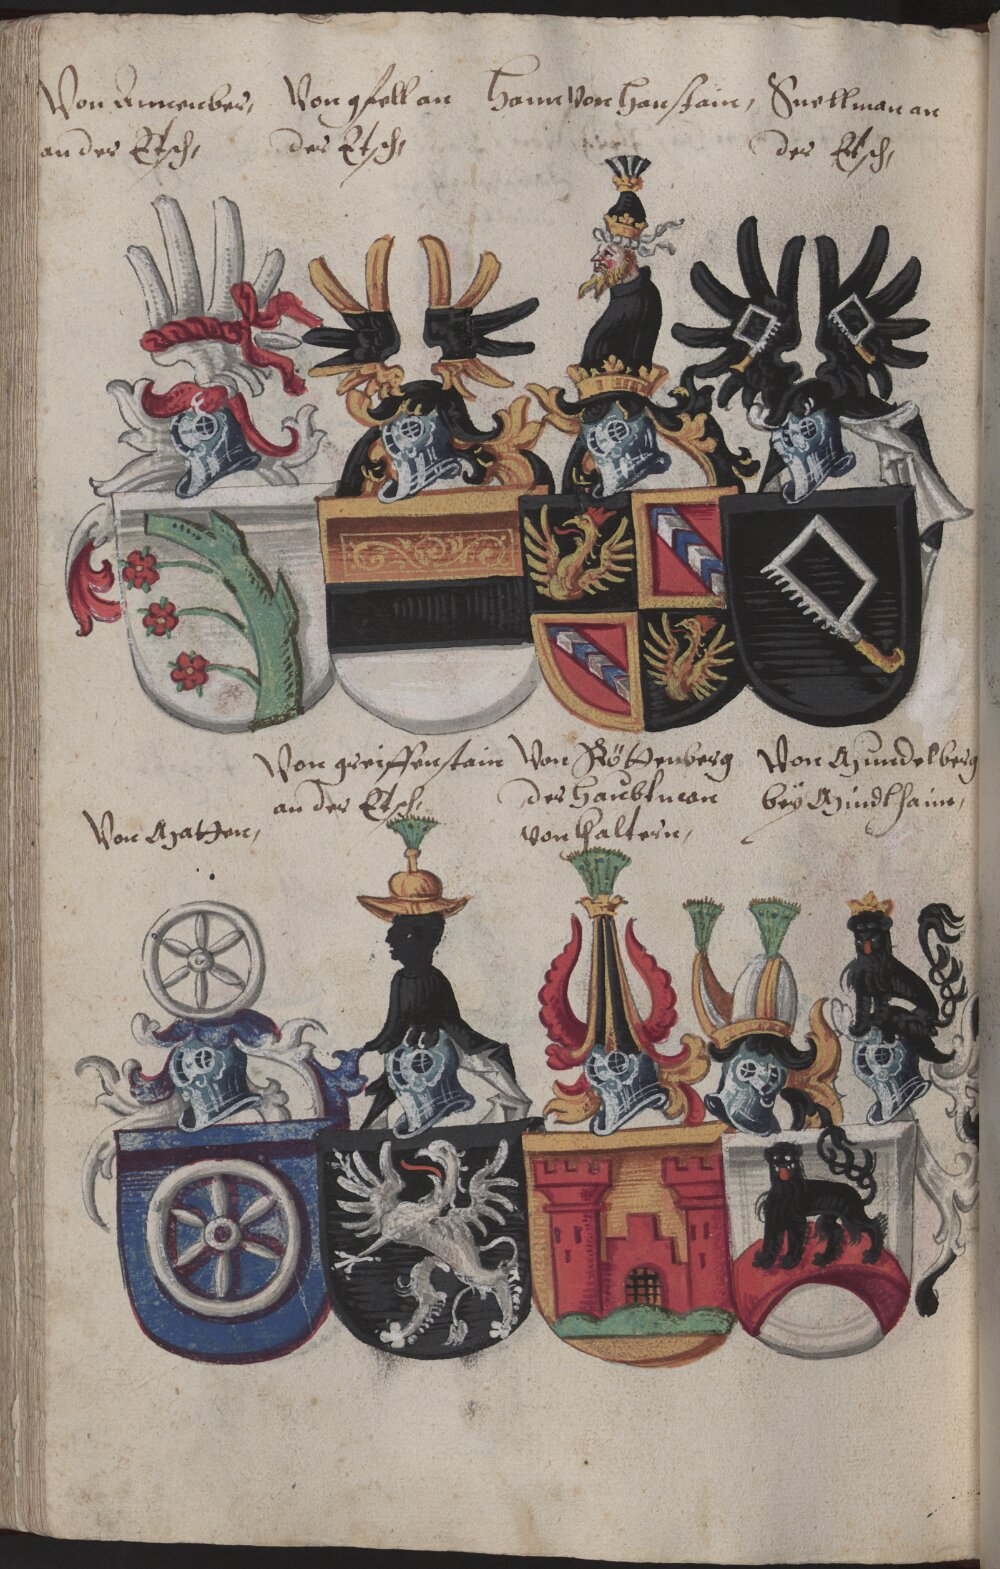 Von Annenber,
an der Etsch,
Von gfell an
der Etsch,
Hann von Hanstain,
Snellman an
der Etsch,
Von Matzen,
Von greiffenstain
an der Etsch,
Von Röttenberg
der Haubtman
von Kaltern,
Von Mündelberg
bey Mindlhaim,